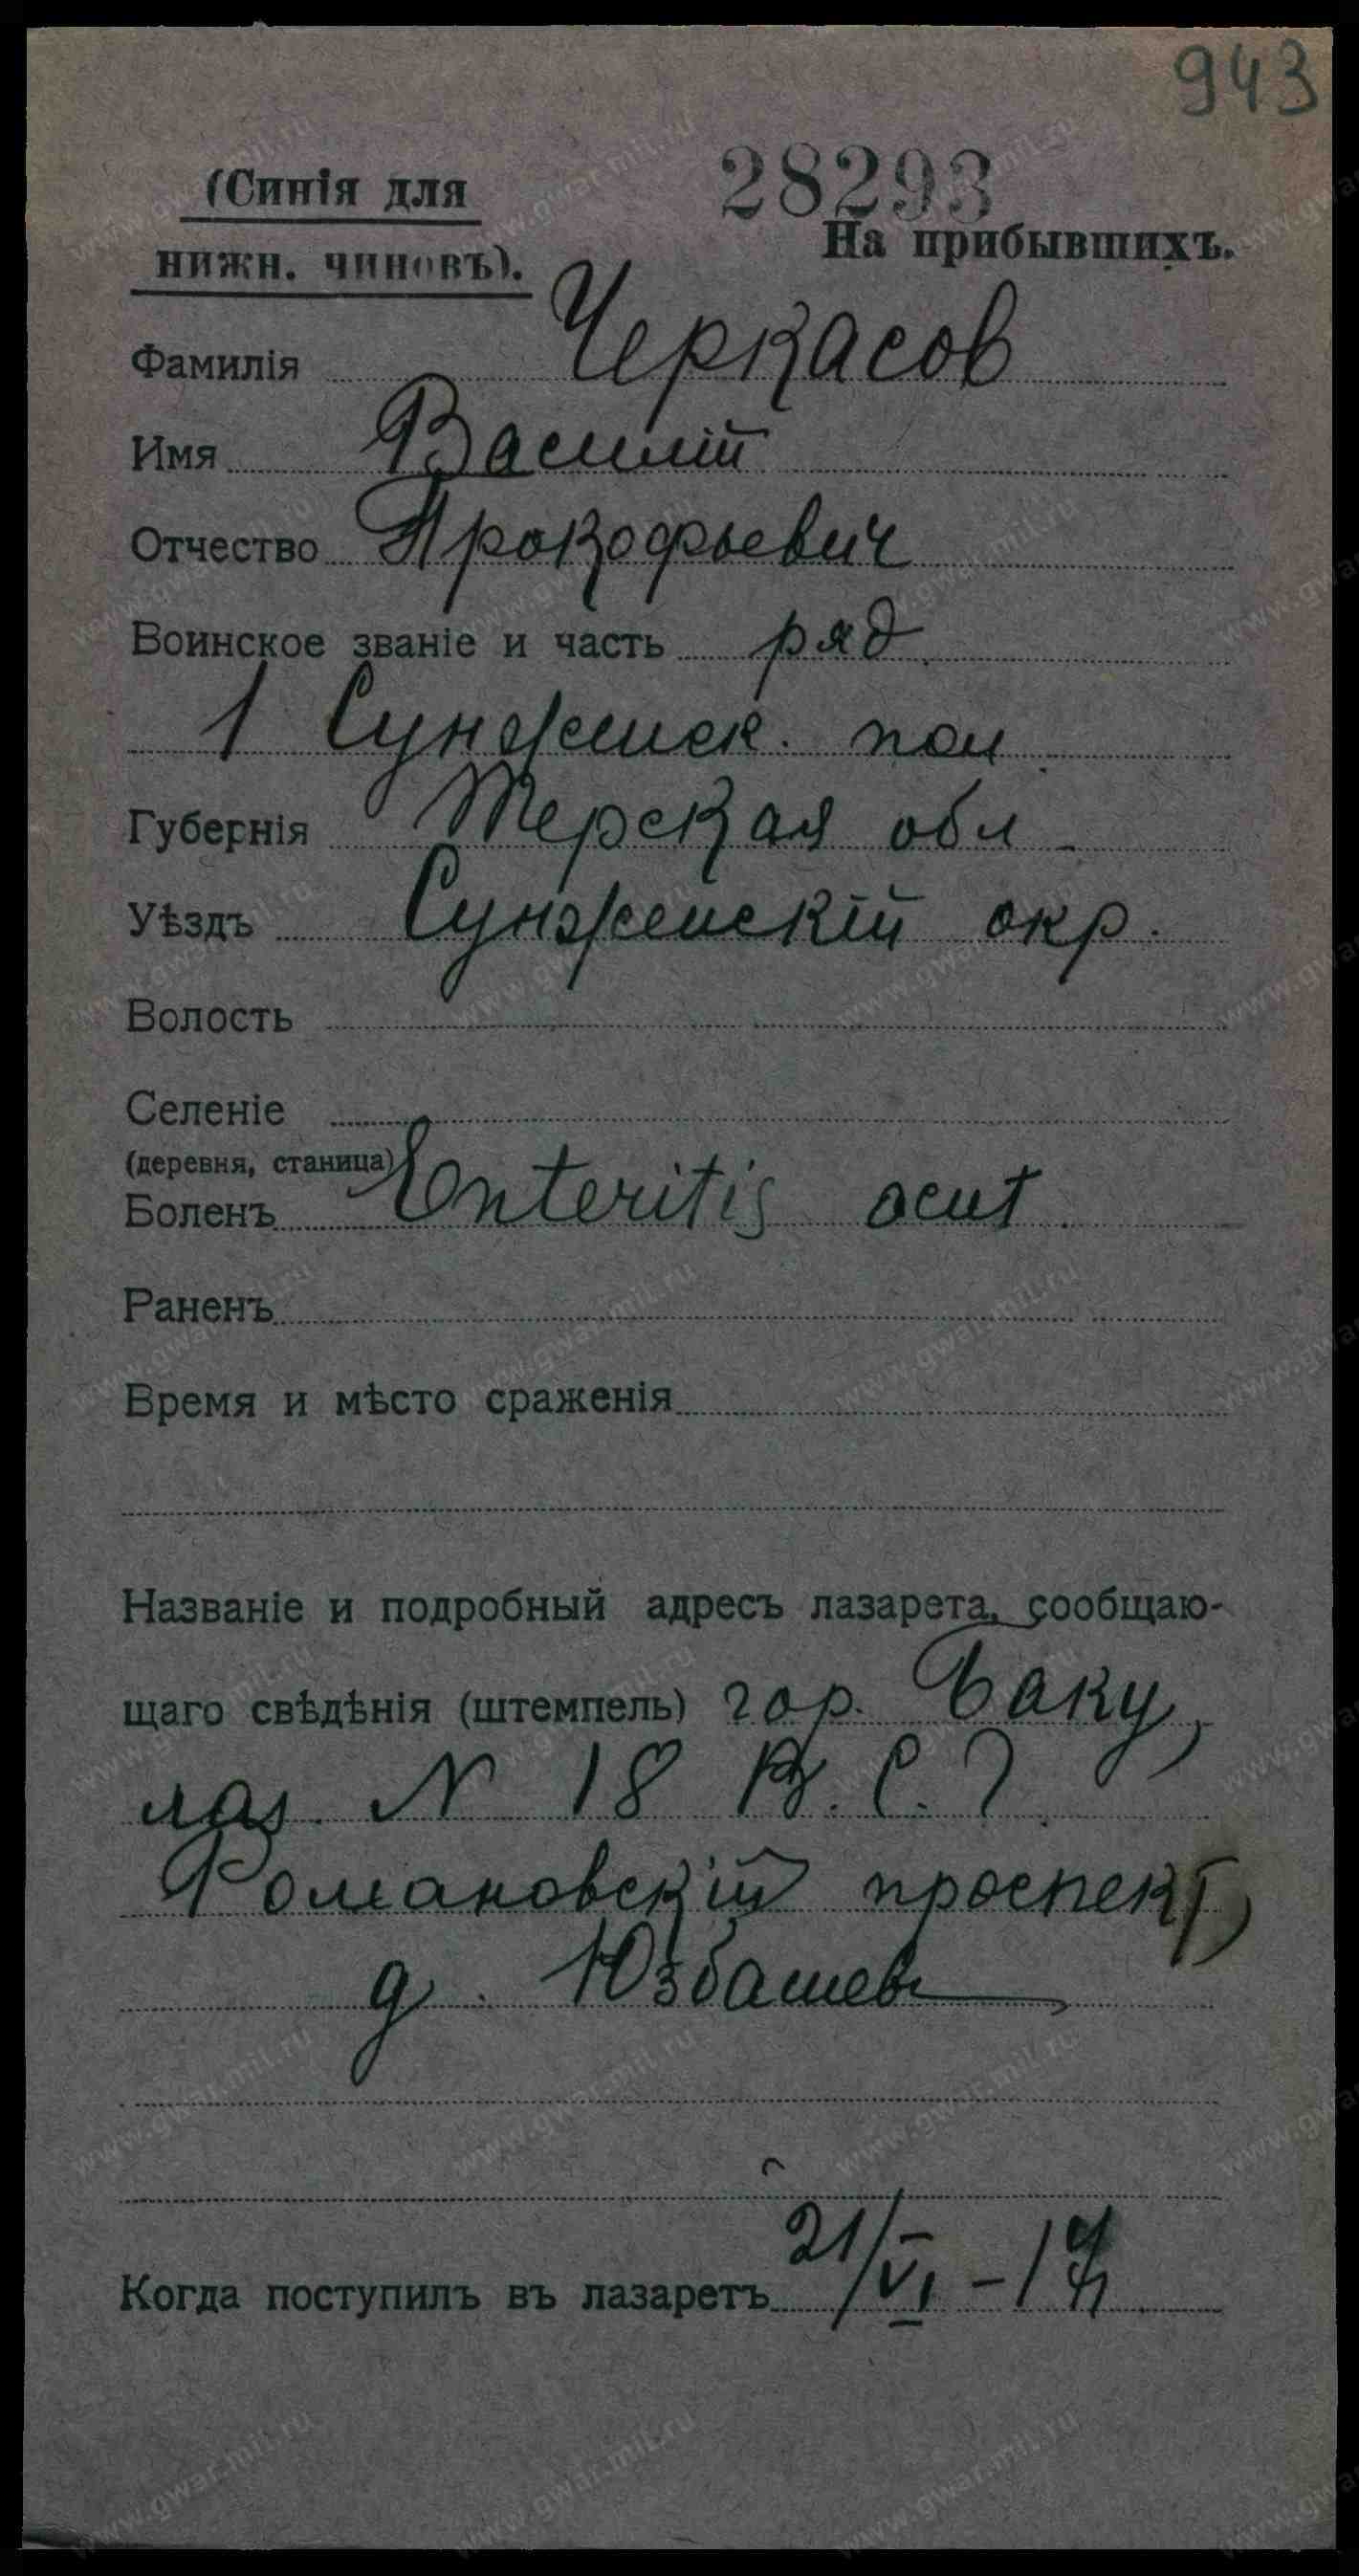 943
28293
(Синія для
нижн. чиновъ).
На прибывшихъ.
Фамилія Черкасов
Имя Василій
Отчество Прокофьевич
Воинское званіе и часть ряд
1 Сунженск. пол
Губернія Терская обл
Уѣздъ Сунженскій окр.
Волость
Селеніе
(деревня, станица)
Боленъ Enteritis acut
Раненъ
Время и мѣсто сраженія
Названіе и подробный адресъ лазарета, сообщаю-
щаго свѣдѣнія (штемпель) гор. Баку,
лаз. N 18 В. С. Г.
Романовскій проспект,
д. Юзбашев
Когда поступилъ въ лазаретъ 21/VI - 17